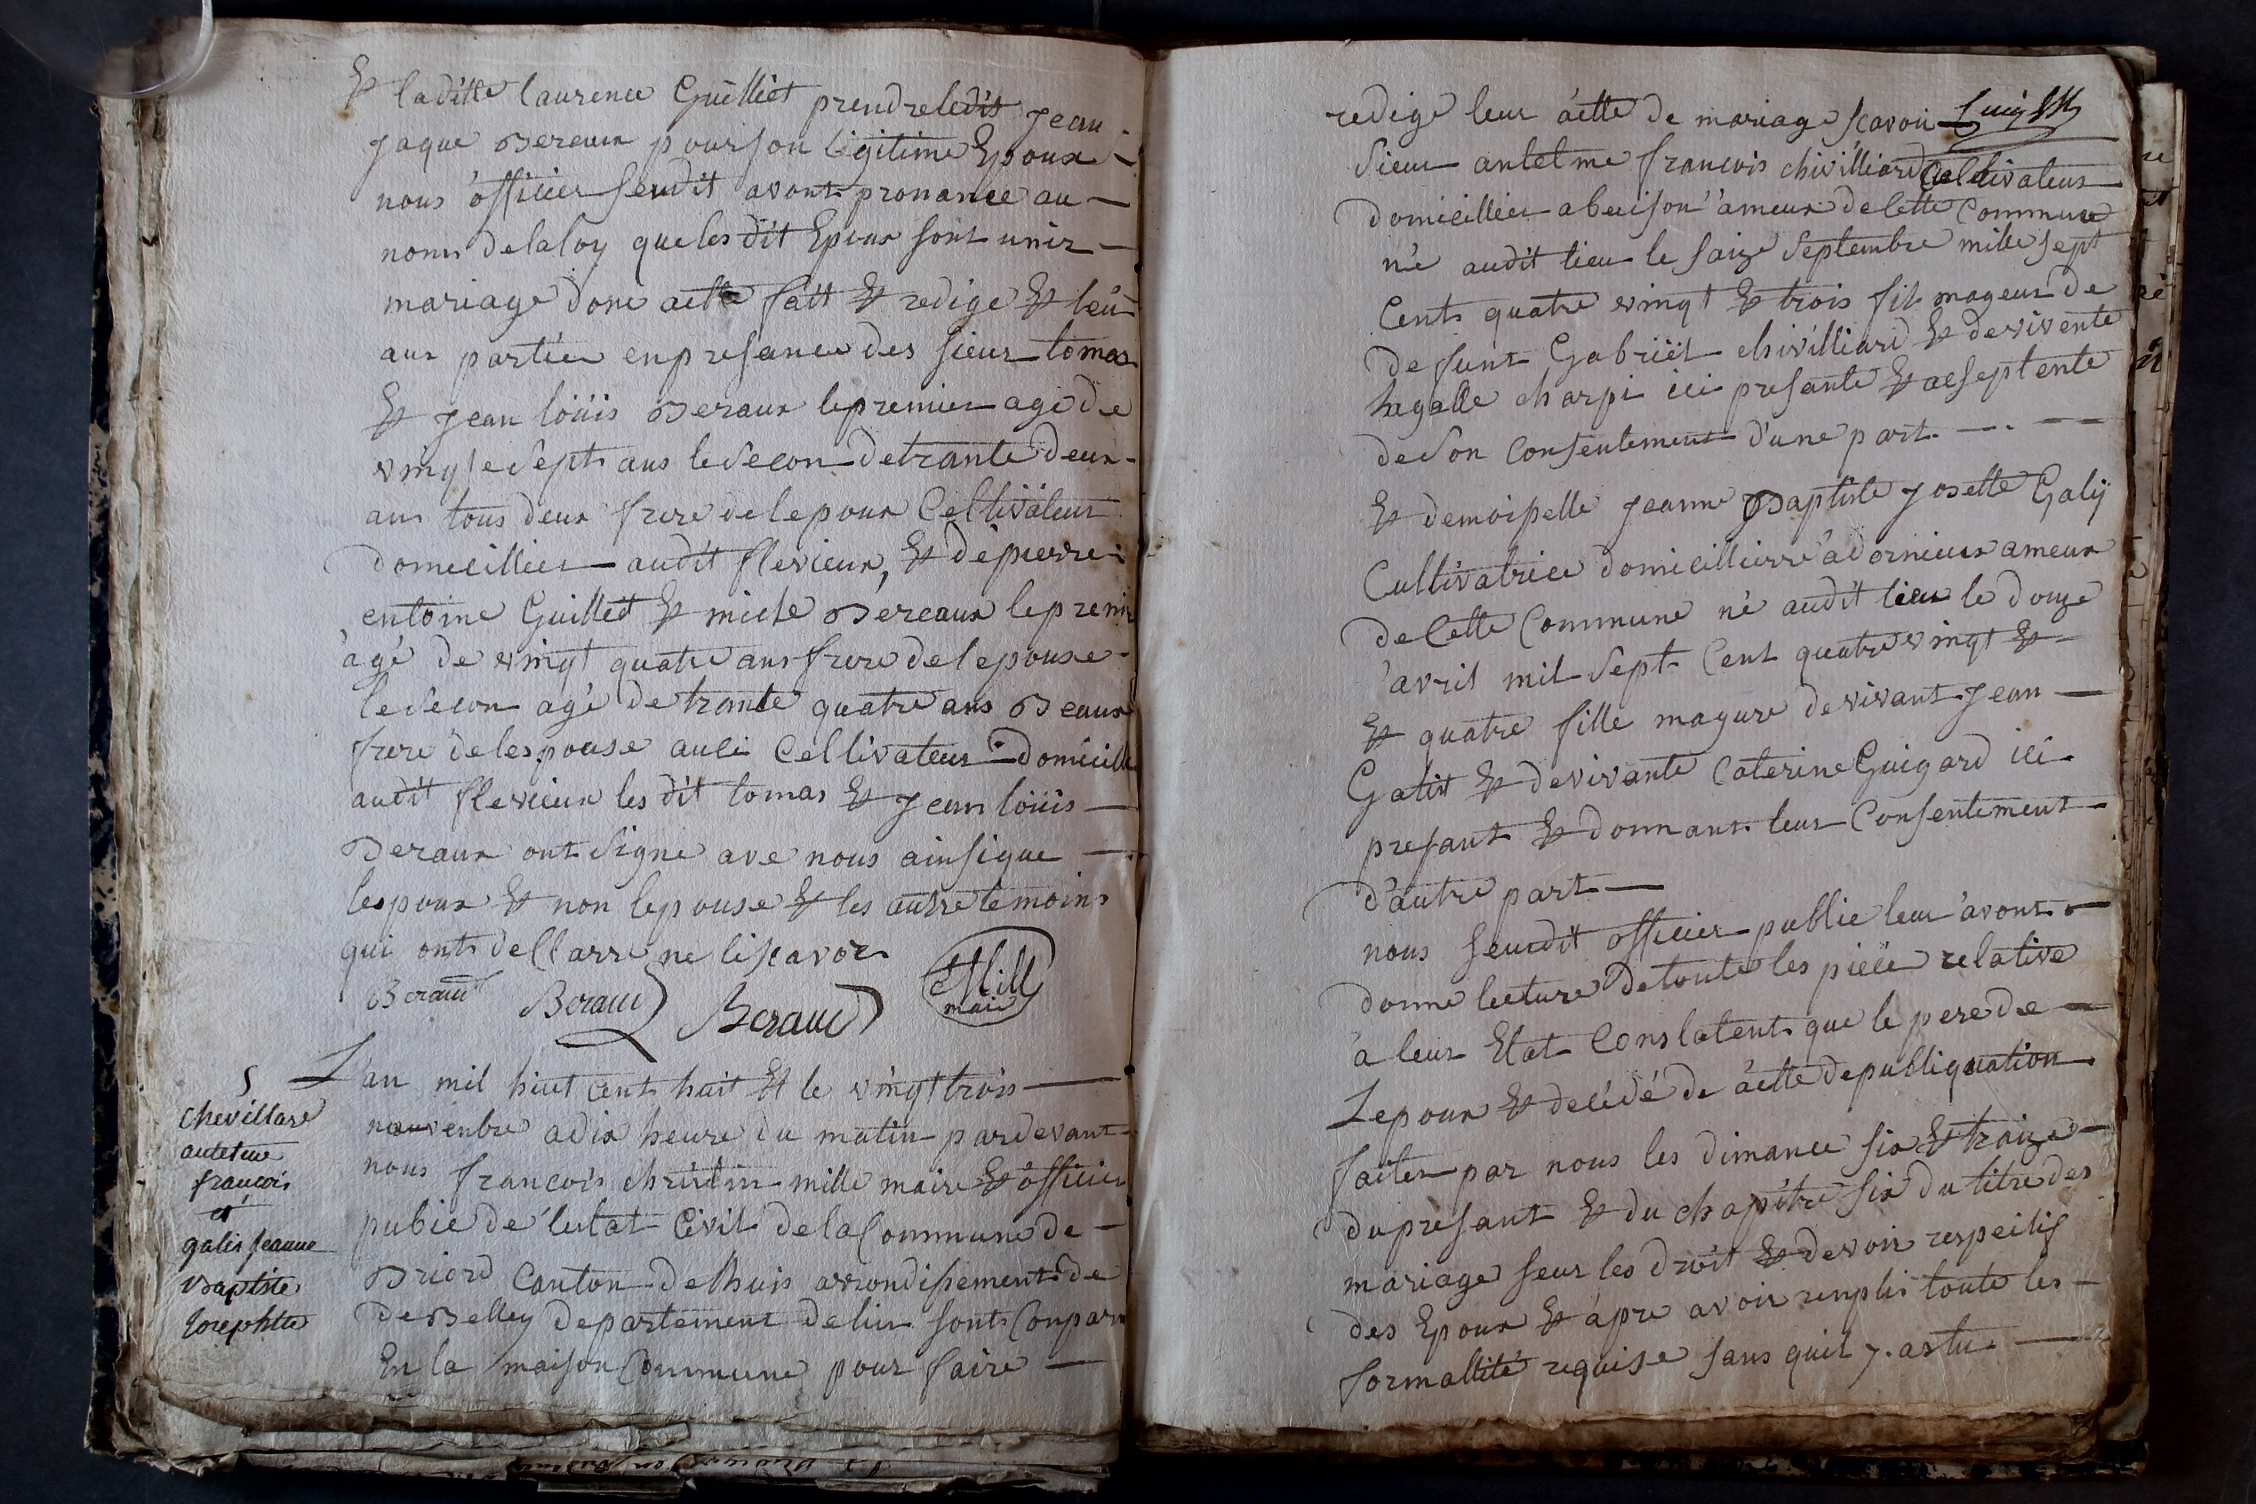 Et laditte laurence Guilliet prendre ledit Jean
Jaque Beraux pour son légitime Epoux
nous officier seudit avont prononce au
nom de la loy que les dit Epoux sont unir
mariage donc actte fait Et redige Et leu
aux partiér en presance des sieur tomas
Et Jean loüis Beraux le premier agé de
vingt e sept ans le secon de trante deux
ans tous deux frere de lepoux Celtivateur
domicillier audit flevieux, Et de pierre
entoine Guilliet Et miche Bereaux le premie
àgé de vingt quatre ans frere de lepouse
le secon agé de trante quatre ans Beaux
frere de lespouse auci Celtivateur domicille
audit flevieux les dit tomas Et Jean loüis
Beraux ont signe ave nous ainsi que
lespoux Et non lepouse Et les autre temoins
qui onts dellarre ne li scavoir
Beraud Beraud Beraud Mill maire
5
chevillard
antelme
francois
et
galis Jeanne
Baptiste
Josephtte
L'an mil huit cent huit Et le vingt trois
nouvenbre a dix heure du matin pardevant
nous francois christin mille maire Et officier
pubic de l'ettat Civil de la Commune de
Briord Canton de lhuis arrondissement de
de Belley departement de lin sont Conparu
En la maison Commune pour faire
redige leur actte de mariage scavoir
Sieur antelme francois chivilliard Celtivateur
domicillier a buison ameux de cette Commune
né audit lieu le saize Septembre mille sept
Cents quatre vingt Et trois fil mageur de
defunt Gabriël chivilliard Et de vivente
charpi ici presante Et acseptente
de son Consentement d'une part.
Et demoiselle Jeanne Baptiste Josette Galij
Cultivatrice domicillierre à dornieux ameux
de Cette Commune né audit lieu le douze
avril mil sept Cent quatre vingt Et
Et quatre fille magure de vivant Jean
Galist Et de vivante Caterine Guigard ici
presant Et donnant leur Consentement
d'autre part
nous seudit officier publie leur avont
donne lecture de toute les piéce relative
à leur Etat Constatent que le pere de
Lepoux Et decédé de actte de publiquation
faites par nous les dimance six Et traize
du presant Et du chapitre six du titre des
mariage seur les droit Et devoir respectif
des Epoux Et apre avoir renpli toute les
formallité requise sans quil y. astu